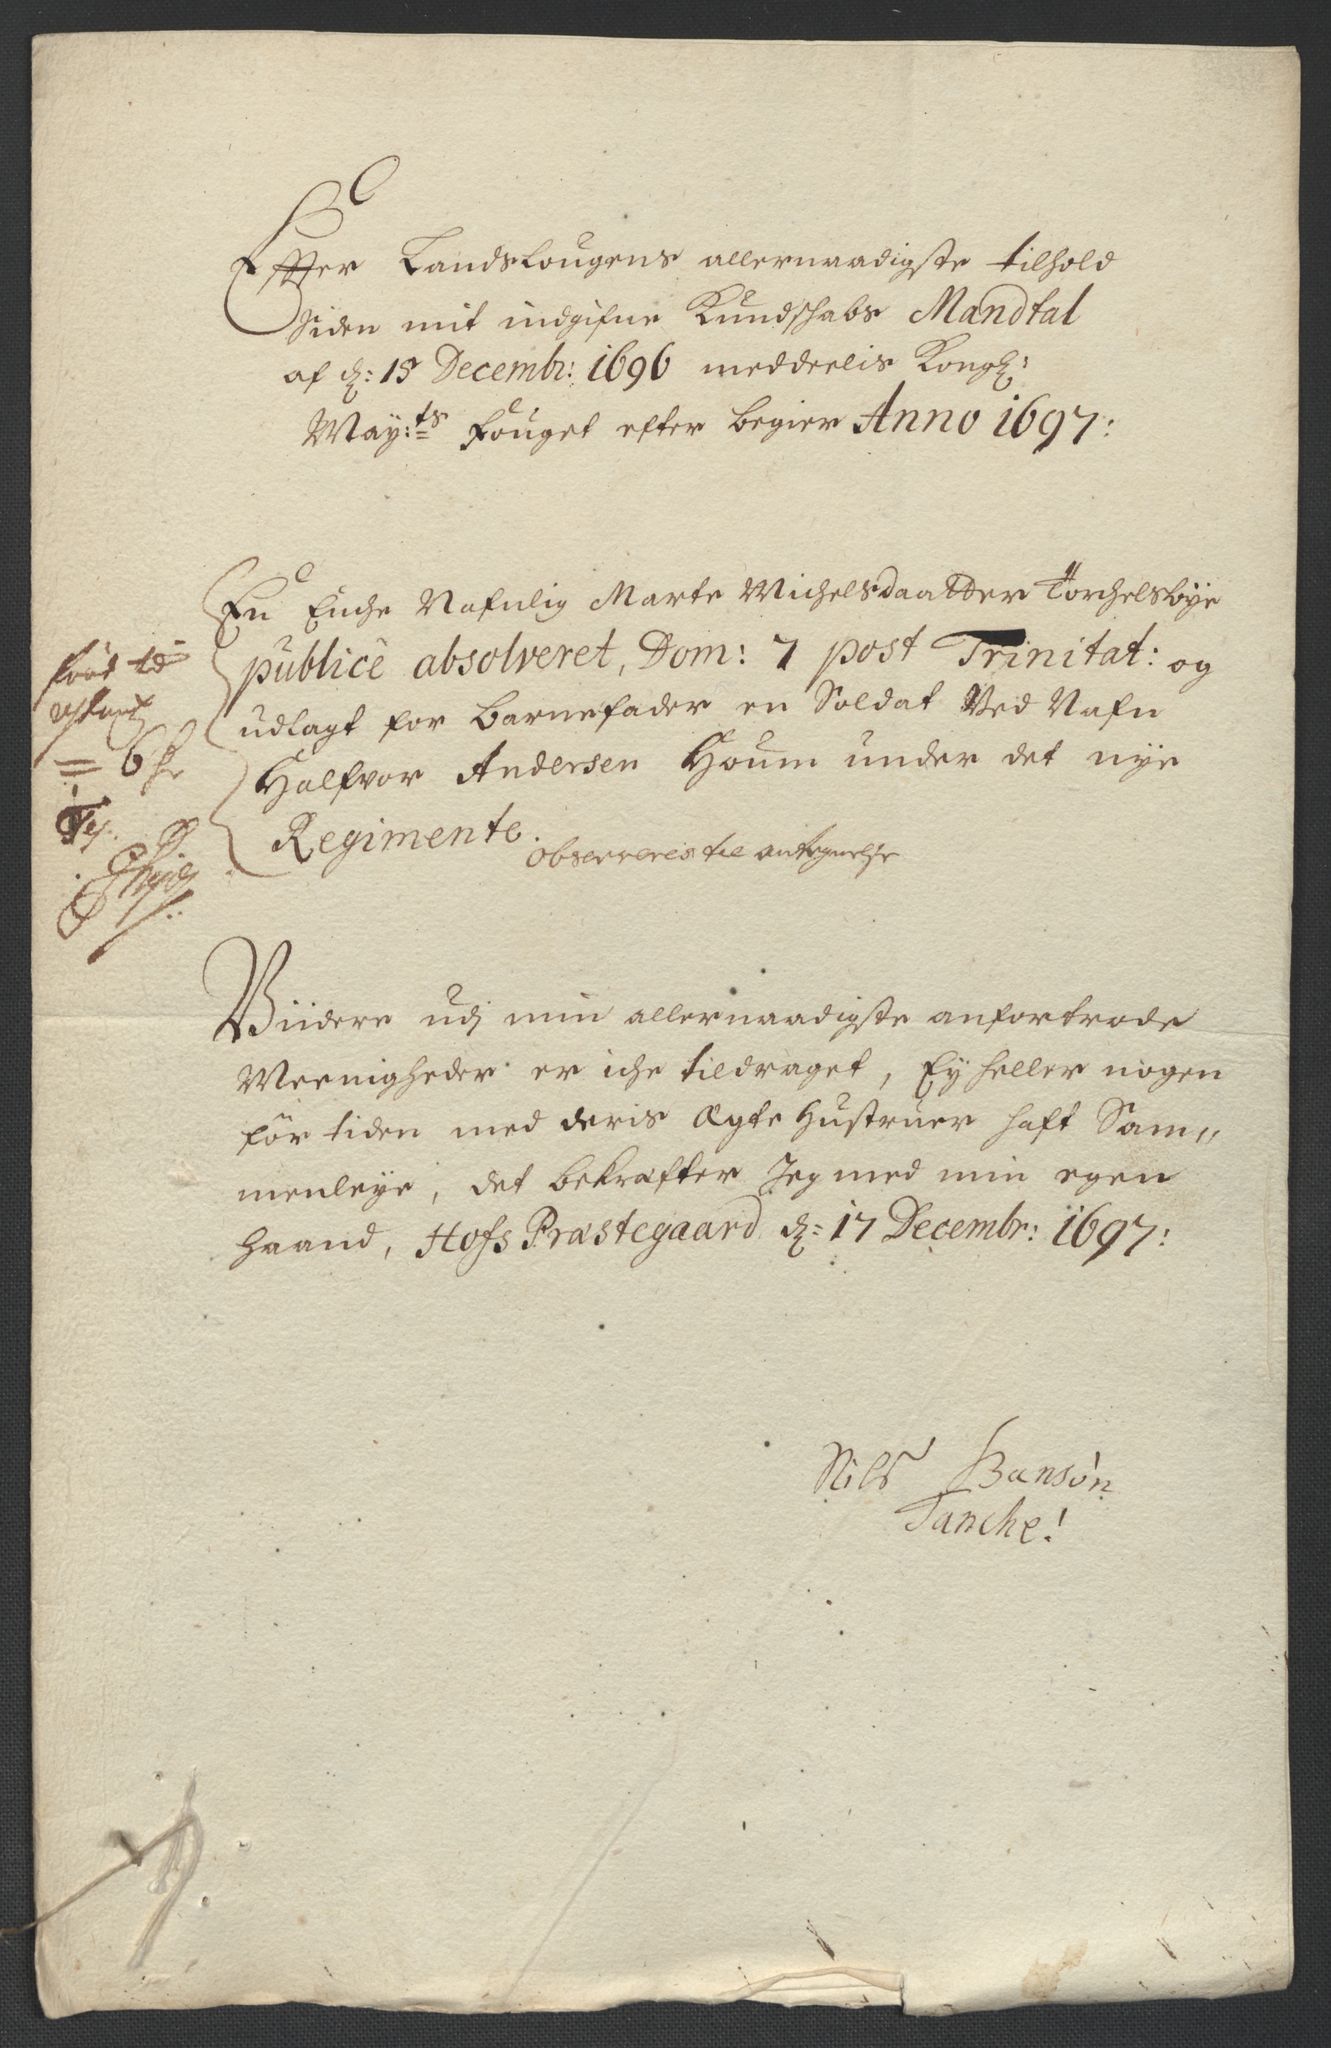 Effter Landslougens allernaadigste tilhold
Siden mit indgifne Kundschabs Mandtal
af d: 15 Decembr: 1696 meddeelis Kongl:
May:ts Fouget efter begier Anno 1697:
En Enche Nafnlig Marte Michelsdaatter Torchelsbye
publicè absolveret, Dom: 7 post Trinitat: og
udlagt for Barnefader en Soldat Ved Nafn
Halfvor Andersen Houm under det nye
Regimente.
Observeres til antegnelse
ført til
6
Viidere udj min allernaadigste anfortrode
Meenigheder er iche tildraget, Ey heller nogen
før tiden med deris Ægte Hustruer haft Sam„
menleye, det bekræfter Jeg med min egen
haand, Hofs Præstegaard d: 17 Decembr: 1697:
Nils Hansøn
Tanche!